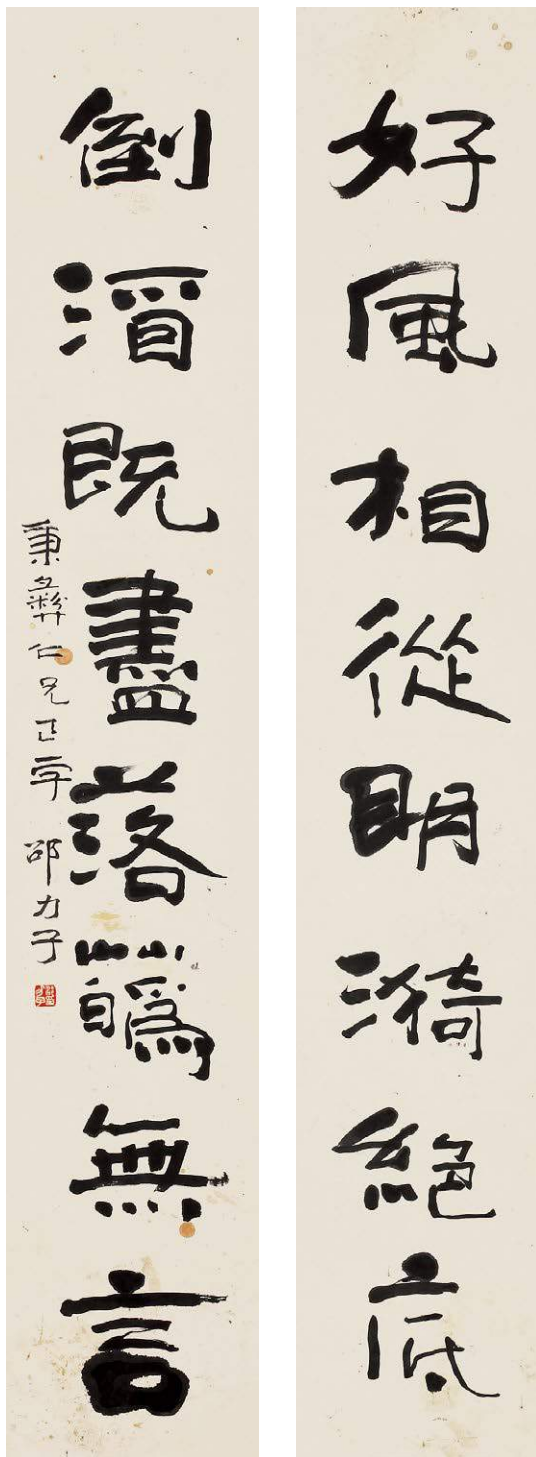 好風相從明漪絕底
倒酒既盡落蘤無言
秉彝仁兄正字 邵力子